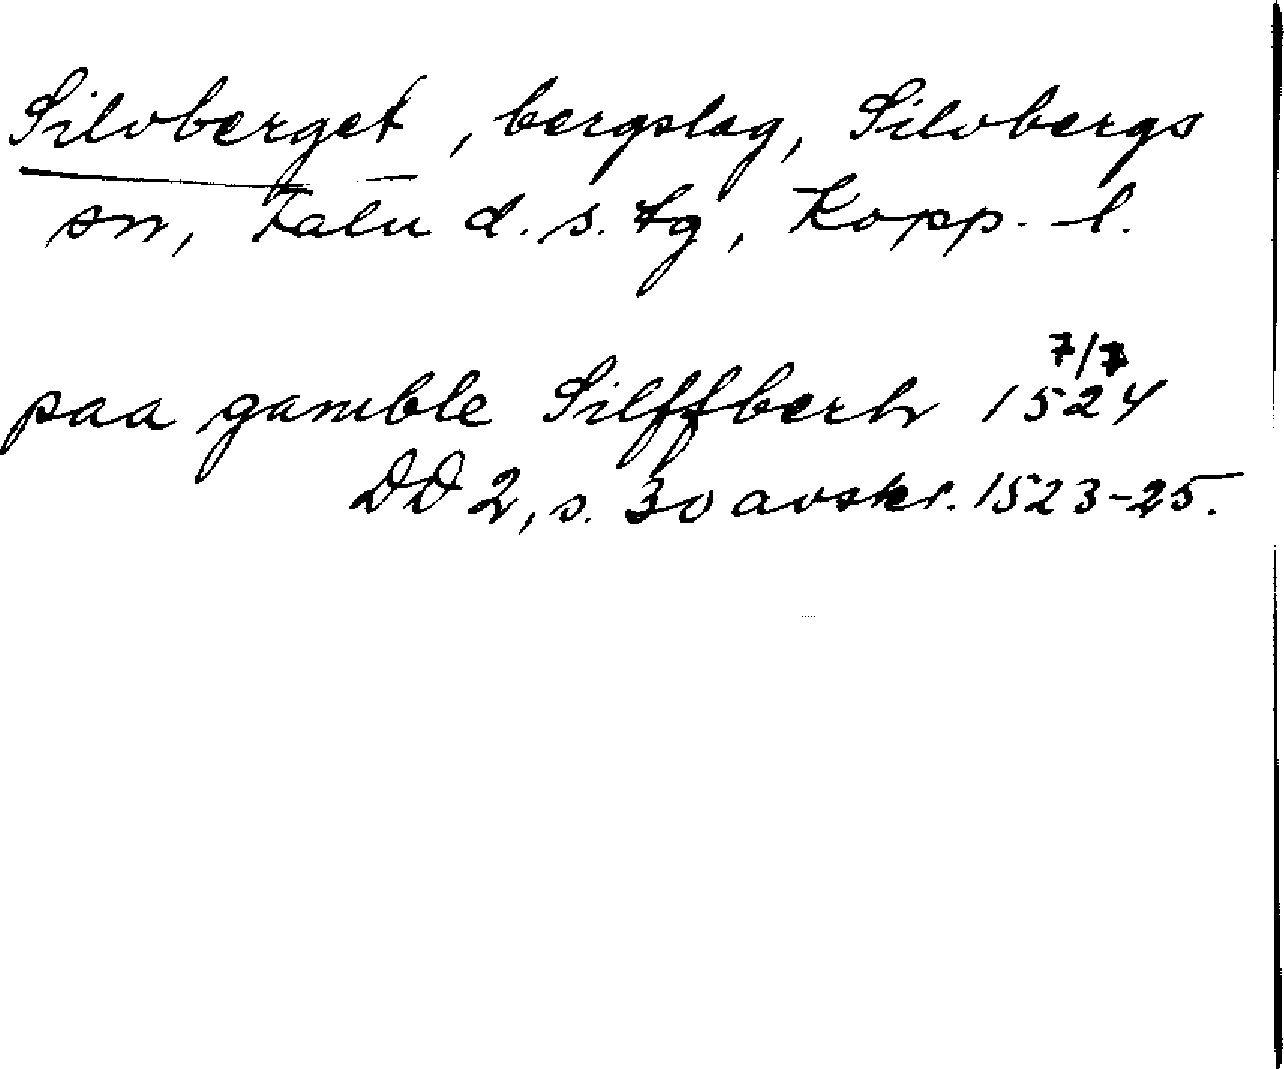 Silvberget, bergslag, Silvbergs
sn, Falu d. s. tg, Kopp. l.
7/7
paa gamble Silffberh 1524
DD 2, s. 30 avskr. 1523-25.